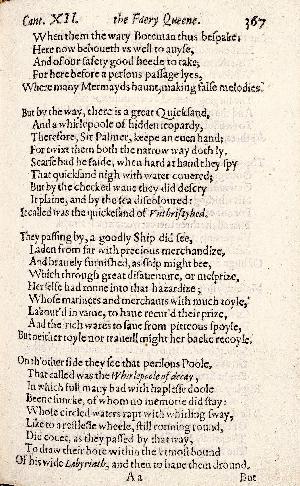 Cant. XII. the Faery Queene. 367
When them the wary Boteman thus bespake;
Here now behoueth vs well to auyse,
And of our safety good heede to take;
For here before a perlous passage lyes,
Where many Mermayds haunt, making false melodies.
But by the way, there is a great Quicksand,
And a whirlepoole of hidden ieopardy,
Therefore, Sir Palmer, keepe an euen hand;
For twixt them both the narrow way doth ly.
Scarse had he saide, when hard at hand they spy
That quicksand nigh with water couered;
But by the checked waue they did descry
It plaine, and by the sea discoloured:
It called was the quicksand of Vnthriftyhed.
They passing by, a goodly Ship did see,
Laden from far with precious merchandize,
And brauely furnished, as ship might bee,
Which through great disauenture, or mesprize,
Her selfe had ronne into that hazardize;
Whose mariners and merchants with much toyle,
Labour'd in vaine, to haue recur'd their prize,
And the rich wares to saue from pitteous spoyle,
But neither toyle nor trauell might her backe recoyle.
On th'other side they see that perilous Poole,
That called was the Whirlepoole of decay,
In which full many had with haplesse doole
Beene suncke, of whom no memorie did stay:
Whose circled waters rapt with whirling sway,
Like to a restlesse wheele, still ronning round,
Did couet, as they passed by that way,
To draw their bote within the vtmost bound
Of his wide Labyrinth, and then to haue them dround.
A a But